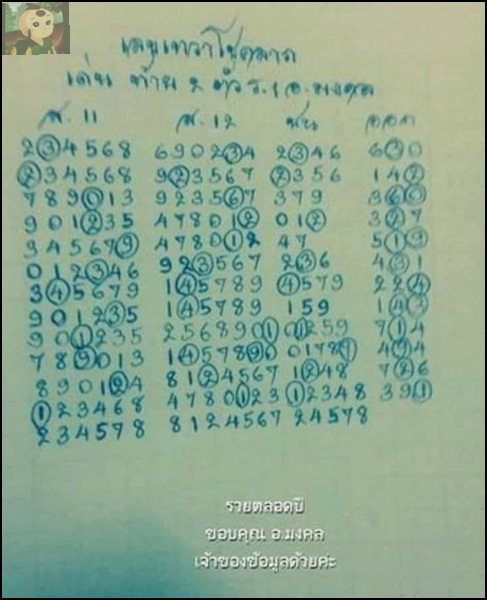 เลขเทวาโชคลาภ
เด่น ท้าย 2 ตัว ร.1 อ.มงคล
ส.11 ส.12 ชน ออก
234568 690234 2346 630
234568 923567 2356 142
789013 923567 379 360
901235 478012 012 327
345679 478012 47 519
012346 923567 236 431
345679 145789 4579 224
901235 145789 159 143
901235 2568901 01259 714
789013 1457896 01789 494
890124 8124567 1248 726
123468 4780123 12348 391
234578 8124567 24578
รวยตลอดปี
ขอบคุณ อ.มงคล
เจ้าของข้อมูลด้วยค่ะ